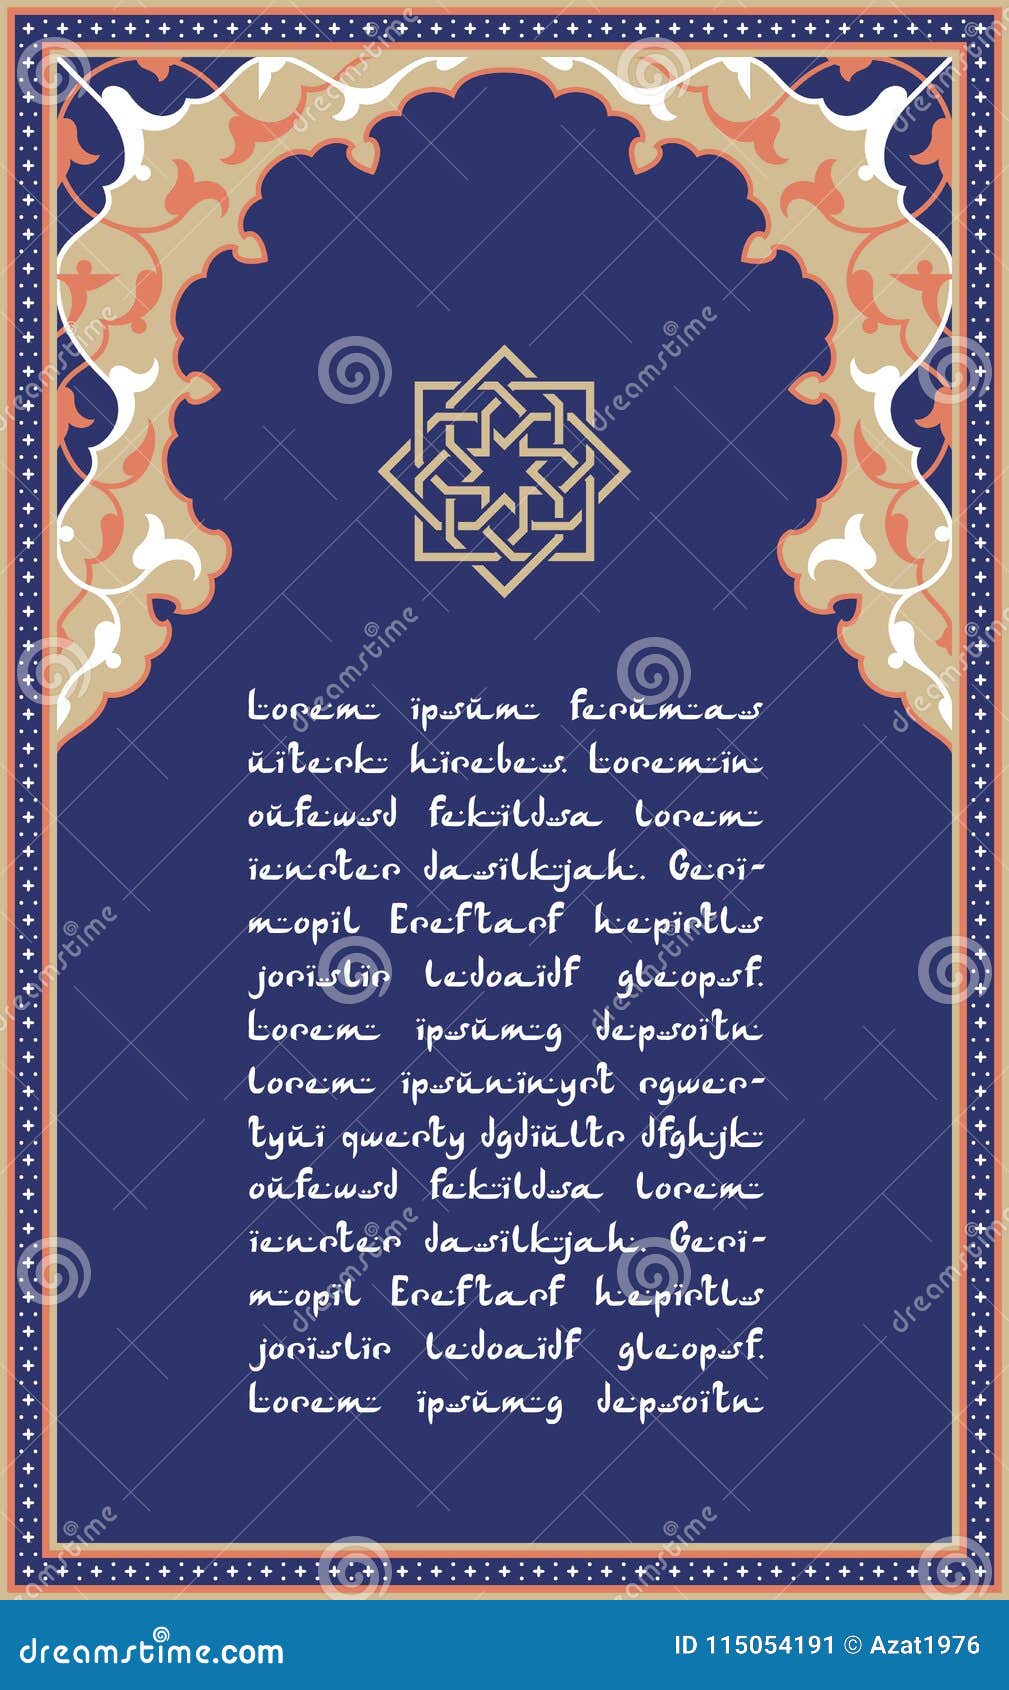 Lorem ipsum ferumas
uiterk hirebes. Loremin
oufewsd fekildsa lorem
ienrter dasilkjah. Geri-
mopil Ereftarf hepirtls
jorislir ledoaidf gleopsf.
Lorem ipsumg depsoitn
lorem ipsuninyrt rgwer-
tyui qwerty dgdiultr dfghjk
oufewsd fekildsa lorem
ienrter dasilkjah. Geri-
mopil Ereftarf hepirtls
jorislir ledoaidf gleopsf.
Lorem ipsumg depsoitn
dreamstime.com
ID 115054191 © Azat1976